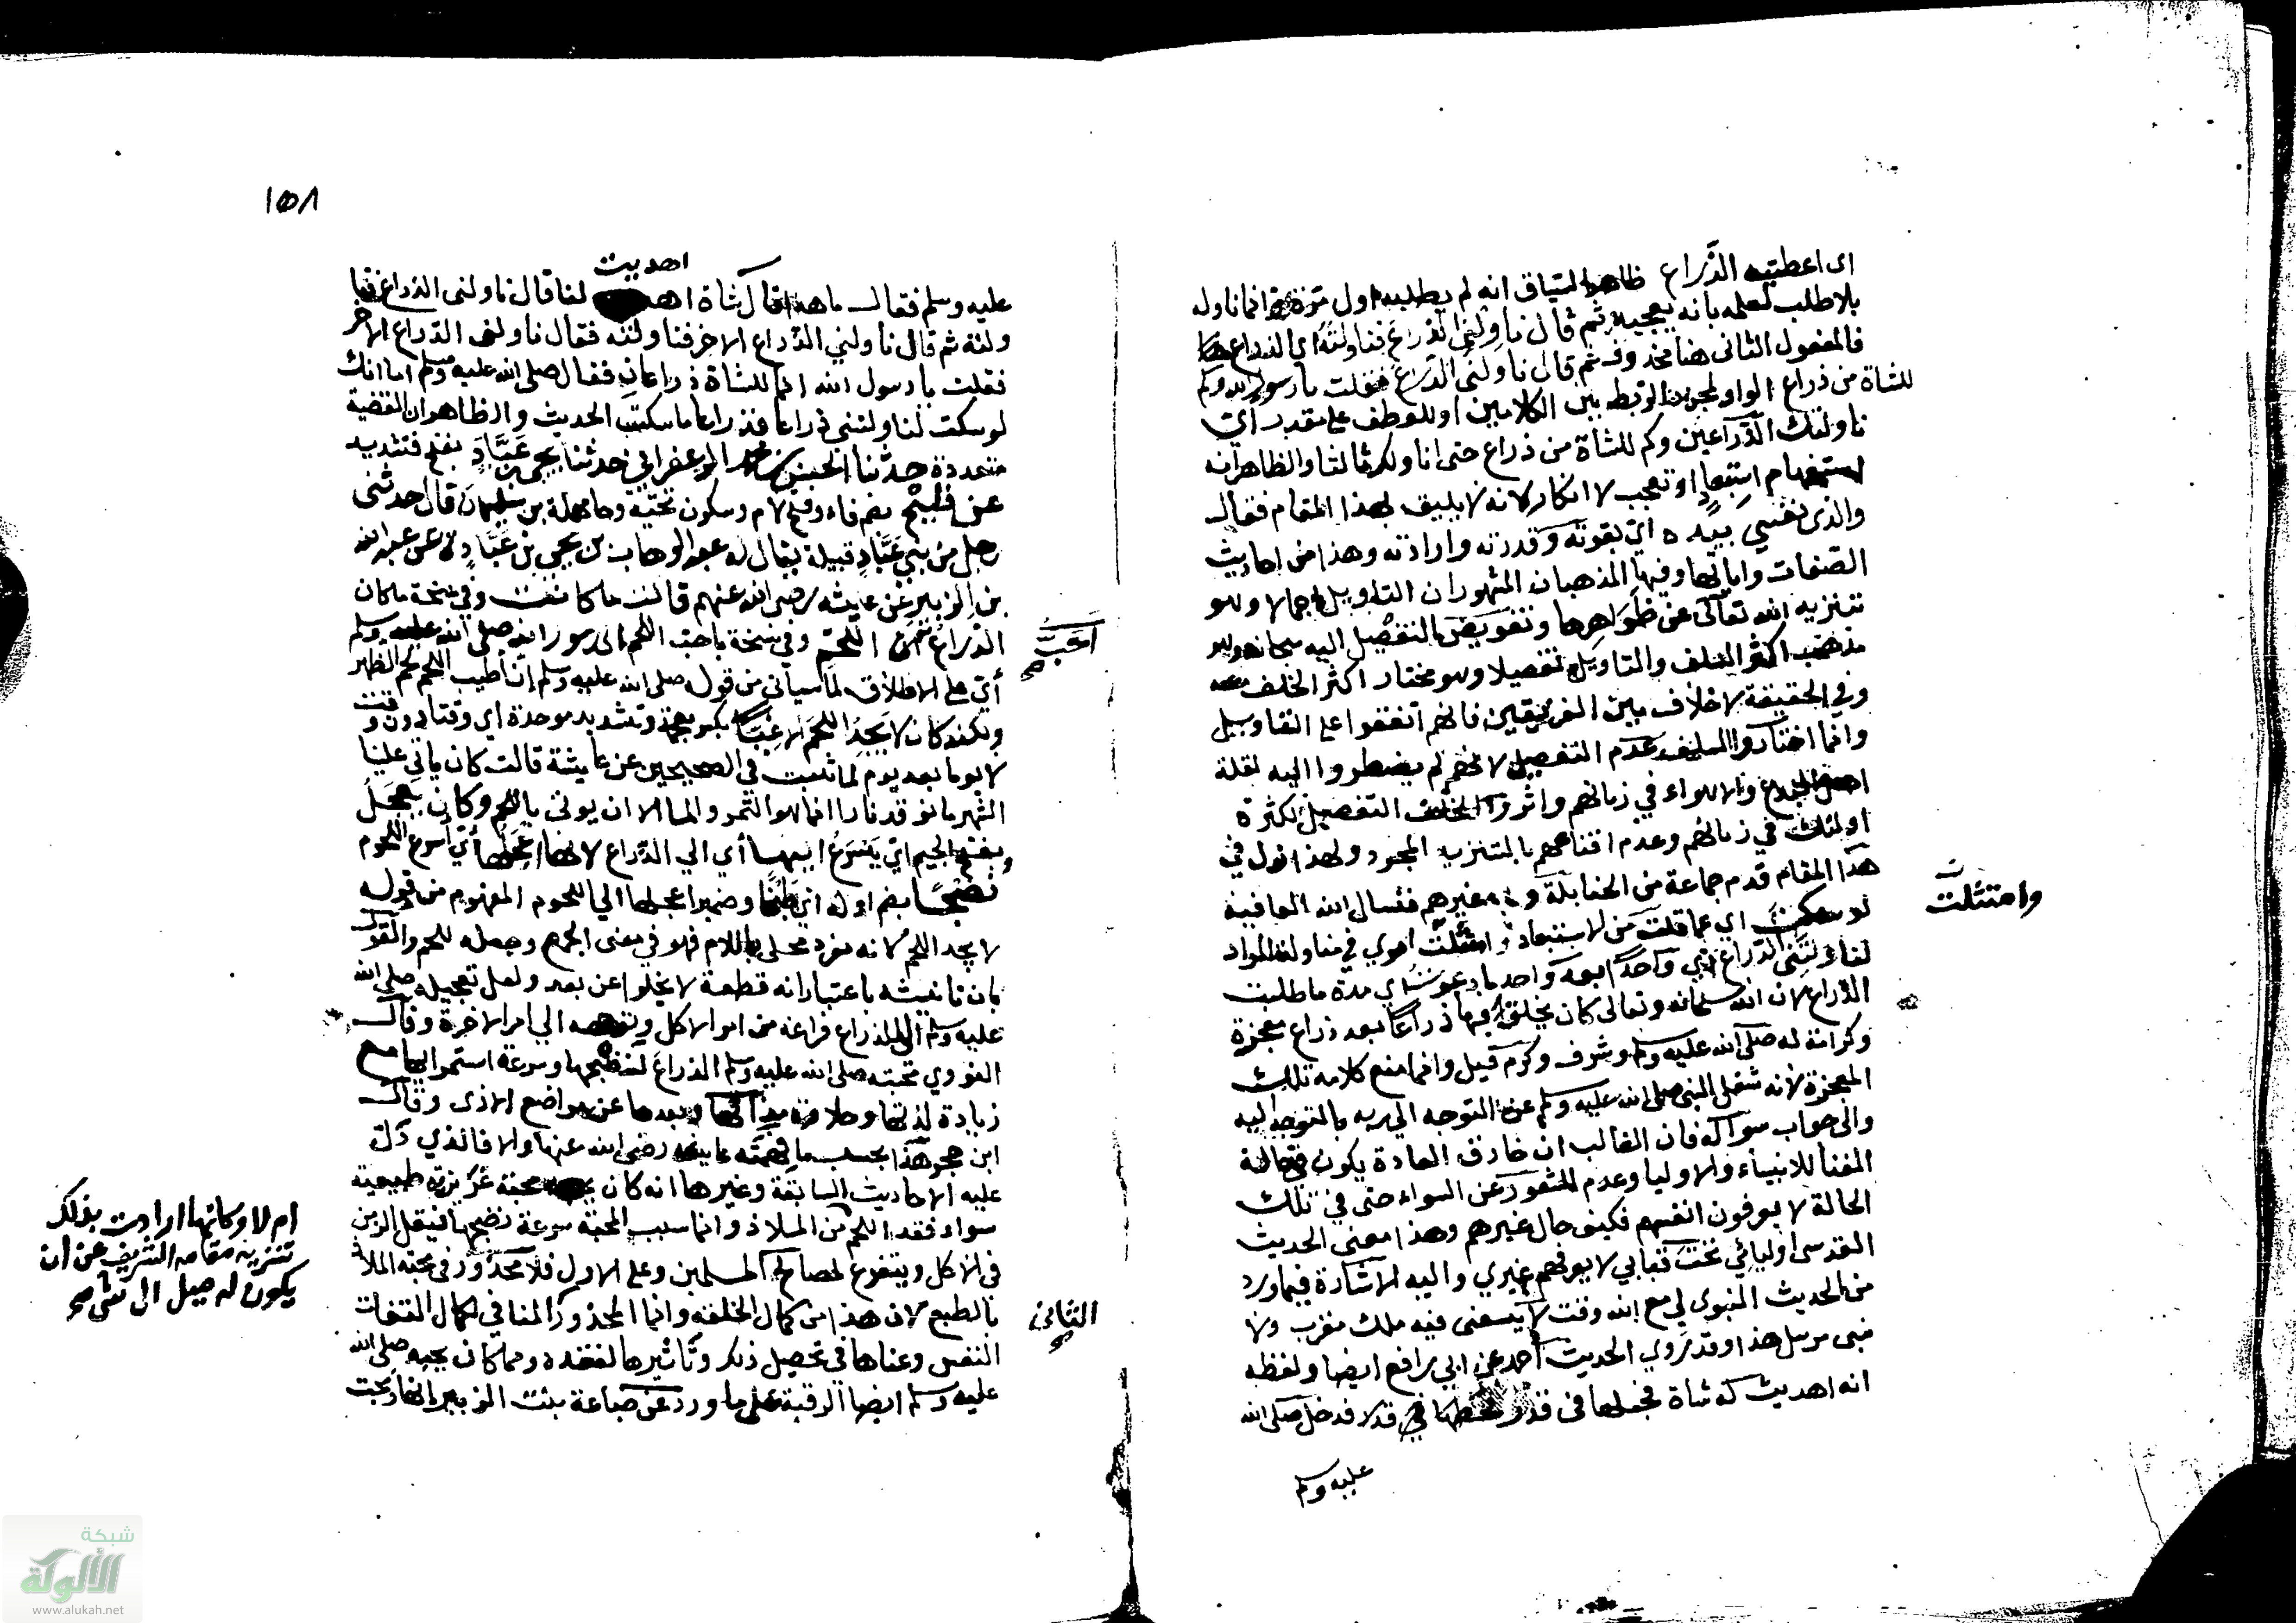 اى اعطيته الذراع ظاهر السياق انه لم يطلبه اول مرة وانما ناوله
بلا طلب لعلمه بانه يعجبه ثم قال ناولنى الذراع فناولته اي الذراع
فالمفعول الثانى هنا محذوف ثم قال ناولنى الذراع فقلت يا رسول الله وكم
للشاة من ذراع الواو لمجرد الربط بين الكلامين او للعطف على مقدر اي
ناولتك الذراعين وكم للشاة من ذراع حتى اناولك ثالثا والظاهر انه
استفهام استبعاد او تعجب لا انكار لانه لا يليق بهذا المقام فقال
والذى نفسي بيده اي بقوته وقدرته وارادته وهذا من احاديث
الصفات واياتها وفيها المذهبان المشهوران التاويل اجمالا وهو
تنزيه الله تعالى عن ظواهرها وتفويض التفصيل اليه سبحانه وهو
مذهب اكثر السلف والتاويل تفصيلا وهو مختار اكثر الخلف
وفي الحقيقة لا خلاف بين الفريقين فانهم اتفقوا على التاويل
وانما اختاروا السلف عدم التفصيل لانهم لم يضطروا اليه لقلة
اهل البدع والاهواء في زمانهم واثروا الخلف التفصيل لكثرة
اولئك في زمانهم وعدم اقناعهم بالتنزيه المجرد ولهذا نزل في
هذا المقام قدم جماعة من الحنابلة وغيرهم فنسال الله العافية
لو سكت اي عما قلت من الاستبعاد وامتثلت امري في مناولة المراد
وامتثلت
لناولتنى الذراع اي واحدا بعد واحد ما دعوت اي مدة ما طلبت
الذراع لان الله سبحانه وتعالى كان يخلق فيها ذراعا بعد ذراع معجزة
وكرامة له صلى الله عليه وسلم وشرف وكرم قيل وانما منع كلامه تلك
المعجزة لانه شغل النبي صلى الله عليه وسلم عن التوجه الى ربه بالتوجه اليه
والى جواب سواله فان الغالب ان خارق العادة يكون في حالة
الفنا للانبياء والاوليا وعدم الشعور عن السواء حتى في تلك
الحالة لا يعرفون انفسهم فكيف حال غيرهم وهذا معنى الحديث
القدسى اوليائي تحت قبابي لا يعرفهم غيري واليه الاشارة فيما ورد
من الحديث النبوى لي مع الله وقت لا يسعنى فيه ملك مقرب ولا
نبى مرسل هذا وقد روي الحديث احمد عن ابي رافع ايضا ولفظه
انه اهديت له شاة فجعلها فى قدر فدخل صلى الله
عليه وسلم
١٥٨
عليه وسلم فقال ما هذا قال شاة اهديت لنا قال ناولنى الذراع فنا
ولته ثم قال ناولني الذراع الاخر فناولته فقال ناولنى الذراع الاخر
فقلت يا رسول الله انما للشاة ذراعان فقال صلى الله عليه وسلم اما انك
لو سكت لناولتنى ذراعا فذراعا ما سكت الحديث والظاهر ان القضية
متعددة حدثنا الحسن بن محمد الزعفراني حدثنا يحيى بن عباد بفتح فتشديد
عن فليح بضم فاء وفتح لام وسكون تحتية وحا مهملة بن سليمان قال حدثنى
رجل من بني عباد قبيلة يقال له عبد الوهاب بن يحيى بن عباد عن عبد الله
بن الزبير عن عايشة رضى الله عنهم قالت ما كانت وفي نسخة ما كان
الذراع احب اللحم وفي نسخة باحب اللحم الى رسول الله صلى الله عليه وسلم
احب صح
أي على الاطلاق لما سياتى من قوله صلى الله عليه وسلم ان اطيب اللحم لحم الظهر
ولكنه كان لا يجد اللحم الا غبا بكسر معجمة وتشديد موحدة اي وقتا دون وقت
لا يوما بعد يوم لما ثبت في الصحيحين عن عايشة قالت كان ياتى علينا
الشهر ما نوقد نارا انما هو التمر والما الا ان يوتى باللحم وكان يعجل
بفتح الجيم اي يسرع اليها أي الى الذراع لانها اعجلها أي اسرع اللحوم
نضجا بضم اوله اي طبخا وضمير اعجلها الى اللحوم المفهوم من قوله
لا يجد اللحم لانه مفرد محلى باللام فهو في معنى الجمع وجعله للحم والقول
بان تانيثه باعتبار انه قطعة لا يخلوا عن بعد ولعل تعجيله صلى الله
عليه وسلم الى الذراع فراغه من امر الاكل وتوجهه الى امر الاخرة وقال
النووي محبته صلى الله عليه وسلم الذراع لنضجها وسرعة استمرائها مع
زيادة لذتها وحلاوة مذاقها وبعدها عن مواضع الاذى وقال
ابن حجر هذا بحسب ما فهمته عايشة رضى الله عنها والا فالذي دل
عليه الاحاديث السابقة وغيرها انه كان يحبه محبة غريزية طبيعية
سواء فقد اللحم ام لا وكانها ارادت بذلك
تنزيه مقامه الشريف عن ان
يكون له ميل الى شى صح
من الملاذ وانما سبب المحبة سرعة نضجها فيقل الزمن
فى الاكل ويتفرغ لمصالح المسلمين وعلى الاول فلا محذور فى محبة الملاذ
بالطبع لان هذا من كمال الخلقة وانما المحذور المنافي للكمال التفات
الثانى صح
النفس وعناها في تحصيل ذلك وتاثيرها لفقده ومما كان يحبه صلى الله
عليه وسلم ايضا الرقبة على ما ورد عن ضباعة بنت الزبير انها ذبحت
شبكة
الألوكة
www.alukah.net